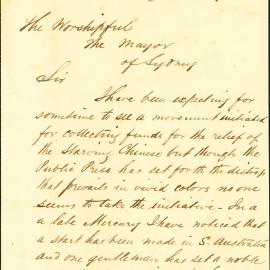 The Worshipful
The Mayor
of Sydney
Sir
I have been expecting for
sometime to see a movement initiated
for collecting funds for the relief of
the starving Chinese but though the
Public Press has set forth the distress
that prevails in vivid colors no one
seems to take the initiative - In a
a late Mercury I have noticed that
a start has been made in S. Australia
and one gentleman has set a noble